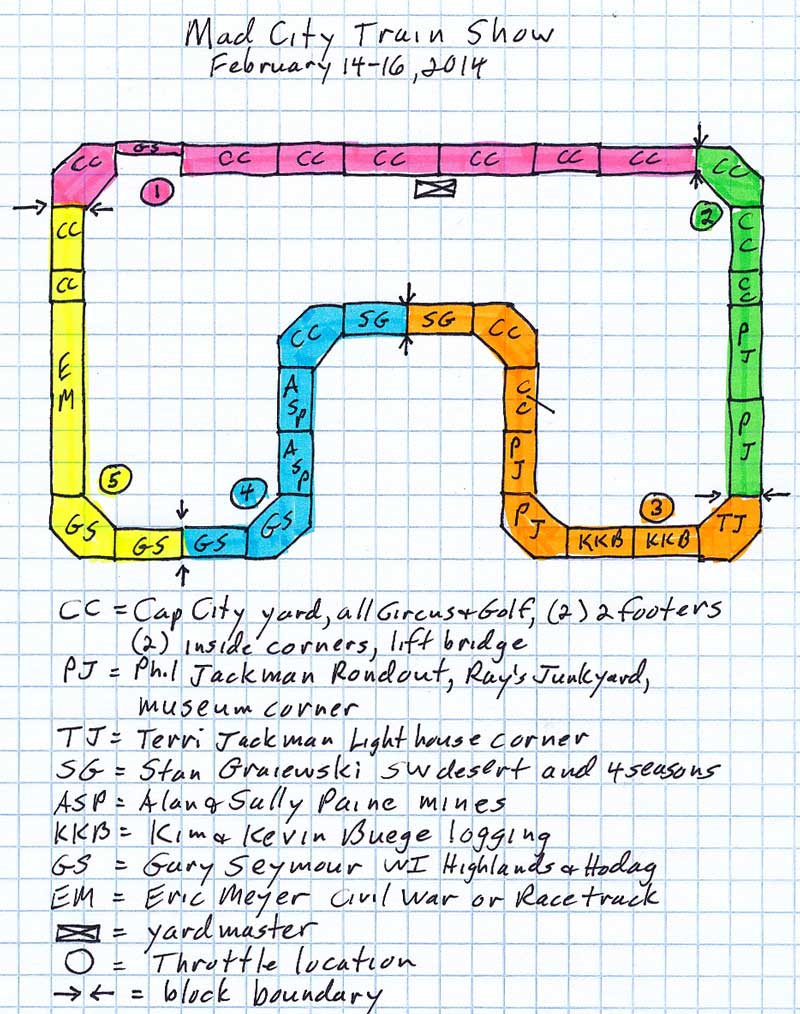 Mad City Train Show
February 14-16, 2014
CC GS CC CC CC CC CC CC CC
1
2
CC CC
CC CC
EM PJ
CC SG SG CC
ASP CC
ASP PJ
PJ
5 4 3
GS GS GS GS PJ KKB KKB TJ
CC = Cap City yard, all Circus & Golf, (2) 2 footers
(2) inside corners, lift bridge
PJ = Phil Jackman Rondout, Ray's Junkyard,
museum corner
TJ = Terri Jackman Lighthouse corner
SG = Stan Graiewski SW desert and 4 seasons
ASP = Alan & Sally Paine mines
KKB = Kim & Kevin Buege logging
GS = Gary Seymour WI Highlands & Hodag
EM = Eric Meyer Civil War or Racetrack
= yardmaster
= Throttle location
= block boundary